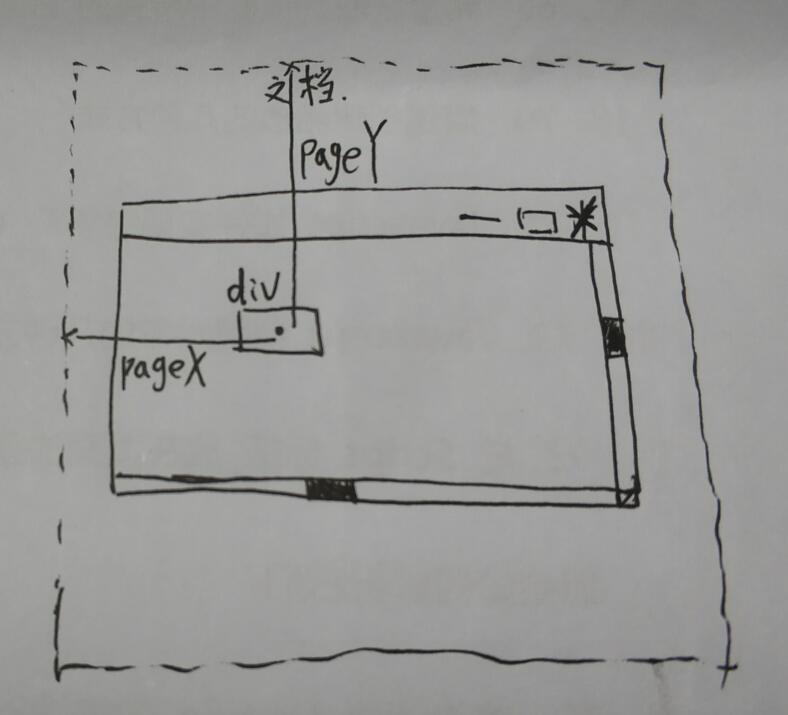 文档.
pageY
div
pageX